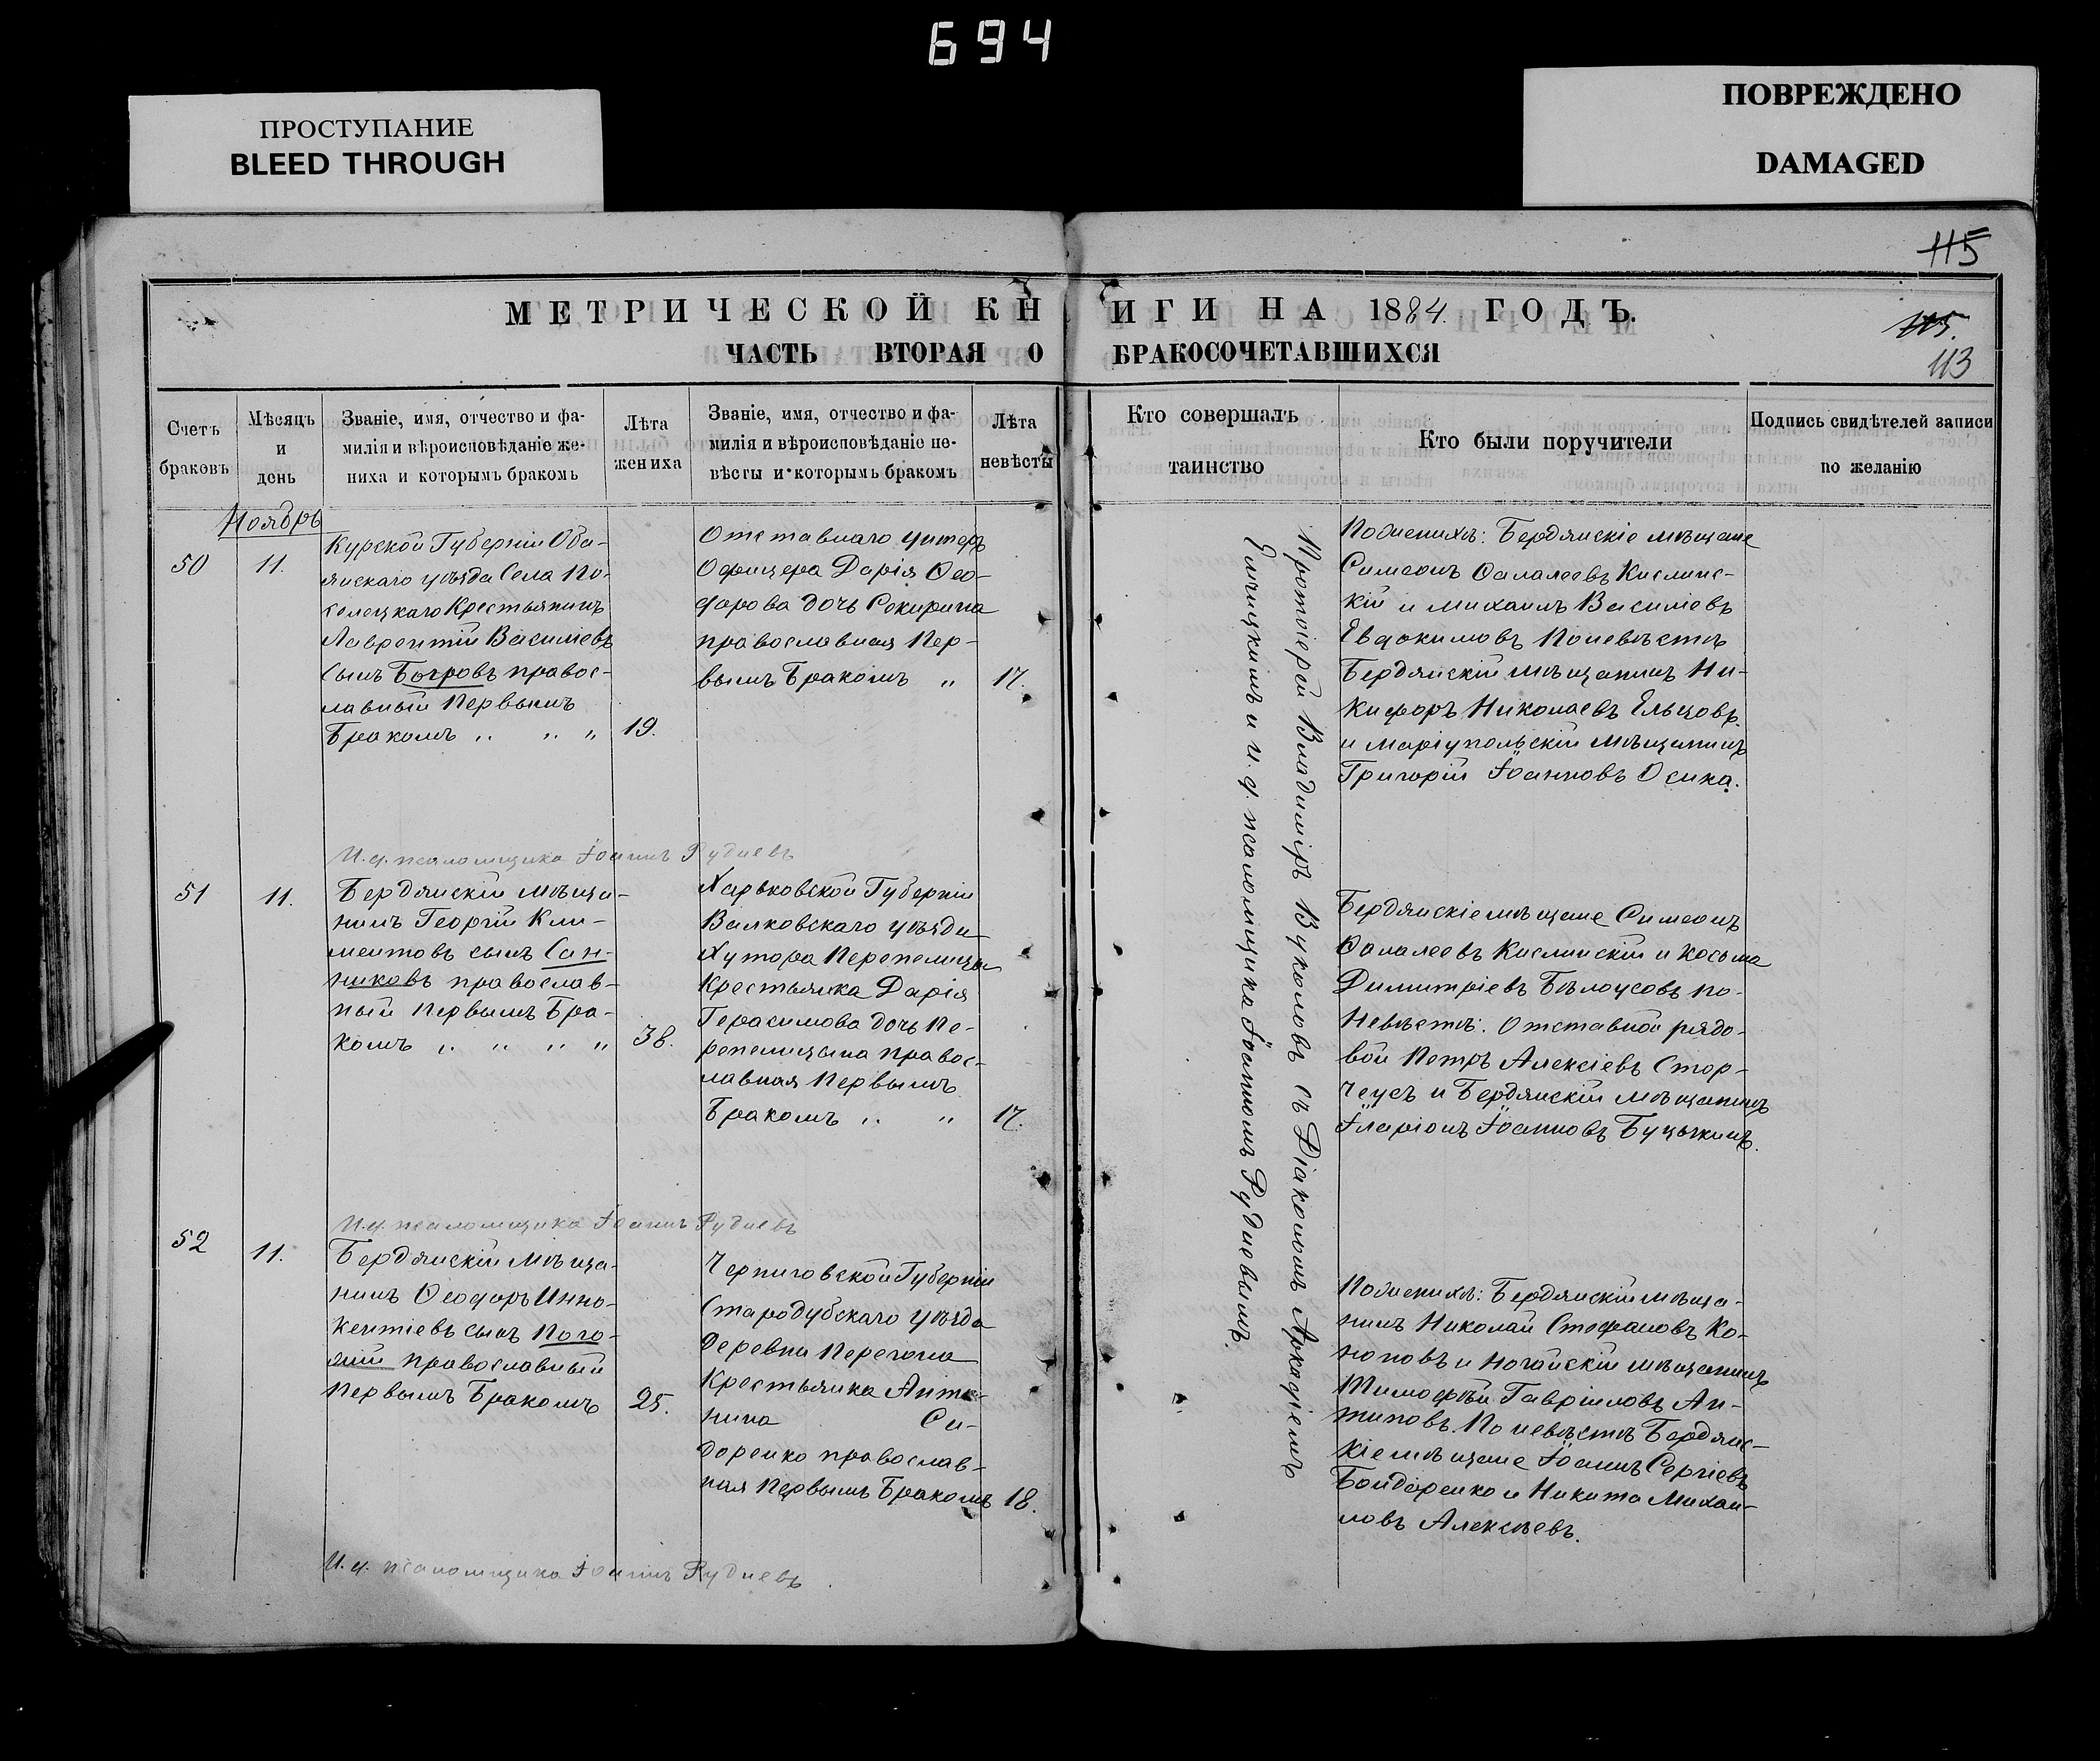 694
ПРОСТУПАНИЕ
BLEED THROUGH
ПОВРЕЖДЕНО
DAMAGED
115
МЕТРИЧЕСКОЙ КНИГИ НА 1884 ГОДЪ.
115.
ЧАСТЬ ВТОРАЯ О БРАКОСОЧЕТАВШИХСЯ
113
Счетъ
браковъ
Мѣсяцъ
и
день
Званіе, имя, отчество и фа-
милія и вѣроисповѣданіе же-
ниха и которымъ бракомъ
Лѣта
жениха
Званіе, имя, отчество и фа-
милія и вѣроисповѣданіе не-
вѣсты и которымъ бракомъ
Лѣта
невѣсты
Кто совершалъ
таинство
Кто были поручители
Подпись свидѣтелей записи
по желанію
Ноябрь
50
11.
Курской Губерніи Оба-
янскаго уѣзда Села По-
селецкаго Крестьянинъ
Лаврентій Василіевъ
сынъ Бочровъ правос-
лавный Первымъ
Бракомъ " " "
19.
Отставнаго унтеръ
Офицера Дарія Ѳео-
дорова дочь Секирина
православная Пер-
вымъ Бракомъ "
17.
Протоіерей Владиміръ Вуколовъ съ Діакономъ Аркадіемъ
Гончицкимъ и и. д. псаломщика Іоанномъ Рудневымъ.
Поженихѣ: Бердянскіе мѣщане
Симеонъ Ѳалалеевъ Кислинс-
кій и Михаилъ Василіевъ
Евдокимовъ Поневѣстѣ
Бердянскій мѣщанинъ Ни-
кифоръ Николаевъ Ельцовъ
и Маріупольскій мѣщанинъ
Григорій Іоанновъ Осика.
И.д. псаломщика Іоаннъ Рудневъ
51
11.
Бердянскій мѣща-
нинъ Георгій Кли-
ментовъ сынъ Сан-
никовъ православ-
ный Первымъ Бра-
комъ " " " "
38.
Харьковской Губерніи
Валковскаго уѣзда
Хутора Перепелицы
Крестьянка Дарія
Герасимова дочь Пе-
репелицына правос-
лавная Первымъ
Бракомъ " "
17.
Бердянскіе мѣщане Симеонъ
Ѳалалеевъ Кислинскій и Косьма
Димитріевъ Бѣлоусовъ по-
Невѣстѣ: Отставной рядо-
вой Петръ Алексіевъ Стор-
чеусъ и Бердянскій мѣщанинъ
Іларіонъ Іоанновъ Буцыкинъ.
И.д. псаломщика Іоаннъ Рудневъ
52
11.
Бердянскій мѣща-
нинъ Ѳеодоръ Инно-
кентіевъ сынъ Пого-
Православный
Первымъ Бракомъ
25.
Черниговской Губерніи
Стародубскаго уѣзда
Деревни Перегона
Крестьянка Анто-
нина Си-
доренко православ-
ная Первымъ Бракомъ
18.
Поженихѣ: Бердянскій мѣща-
нинъ Николай Стефановъ Ко-
ноновъ и Ногайскій мѣщанинъ
Тимофѣй Гавріиловъ Ан-
типовъ. Поневѣстѣ Бердянс-
кіе мѣщане Іоаннъ Сергіевъ
Бондаренко и Никита Михаи-
ловъ Алексѣевъ.
И.д. псаломщика Іоаннъ Рудневъ